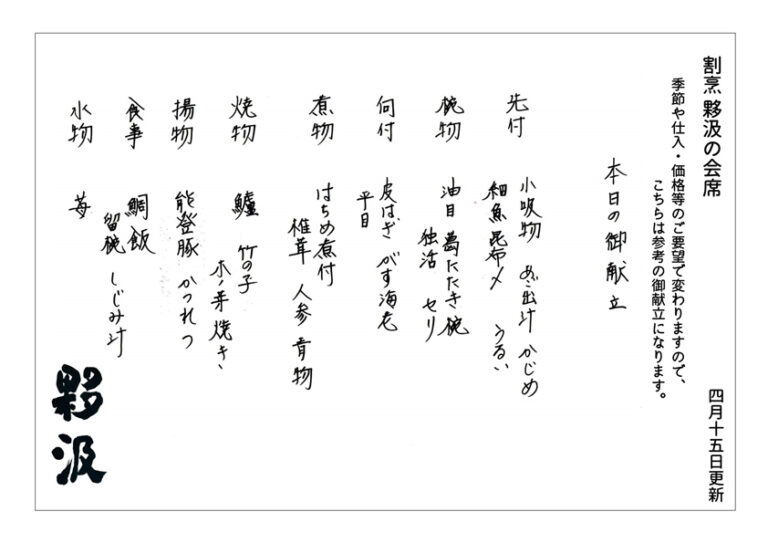 割烹 夥汲の会席
季節や仕入・価格等のご要望で変わりますので、
こちらは参考の御献立になります。
四月十五日更新
本日の御献立
先付
小吸物 あご出汁 かじめ
細魚昆布〆 うるい
椀物
油目 葛たたき椀
独活 セリ
向付
皮はぎ がす海老
平目
煮物
はちめ煮付
椎茸 人参 青物
焼物
鱸 竹の子
木ノ芽焼き
揚物
能登豚 かつれつ
食事
鯛飯
留椀 しじみ汁
水物
苺
夥汲